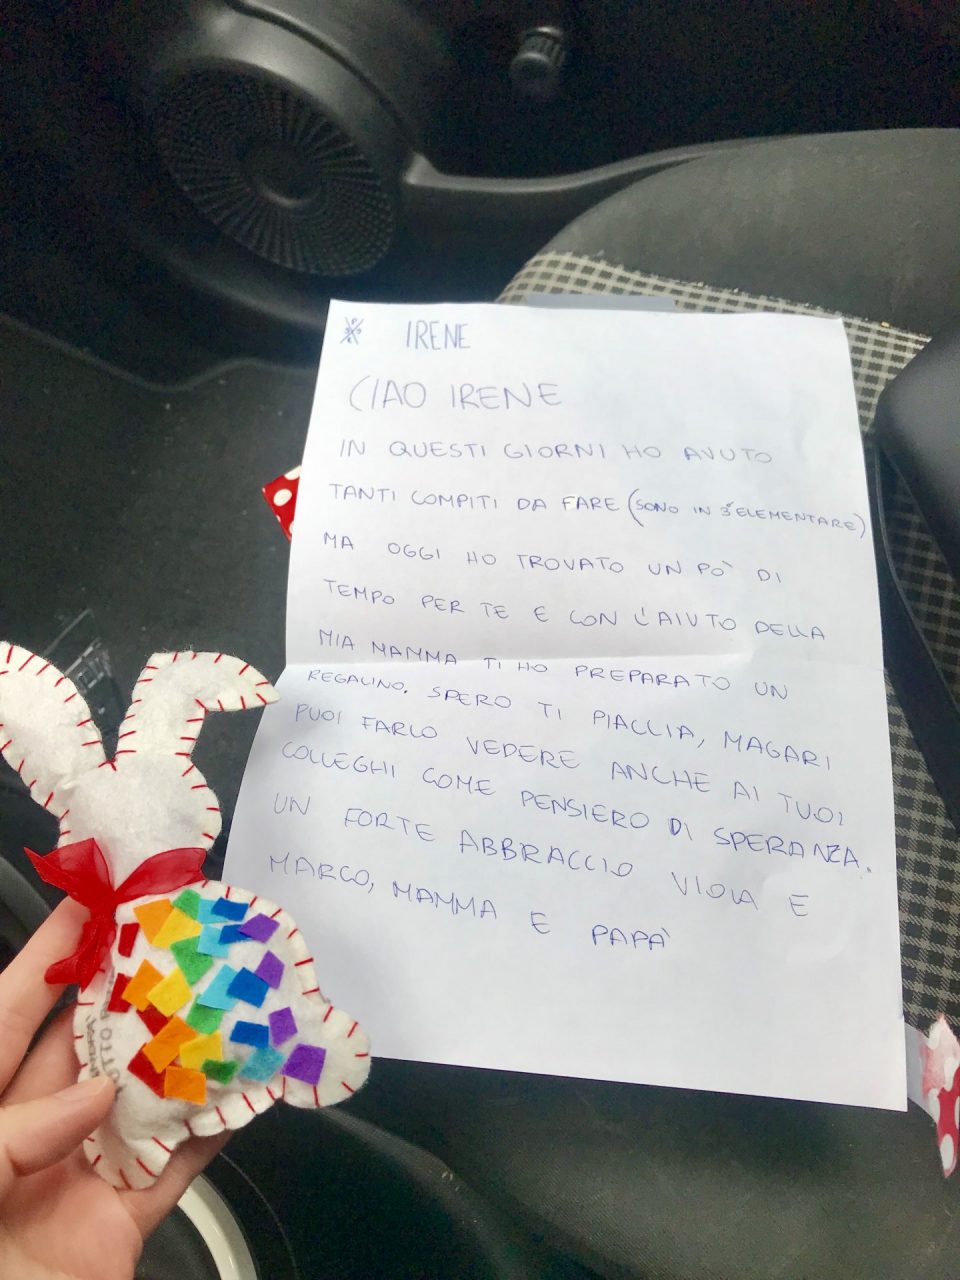 IRENE
CIAO IRENE
IN QUESTI GIORNI HO AVUTO
TANTI COMPITI DA FARE (SONO IN 3ª ELEMENTARE)
MA OGGI HO TROVATO UN PO' DI
TEMPO PER TE E CON L'AIUTO DELLA
MIA MAMMA TI HO PREPARATO UN
REGALINO. SPERO TI PIACCIA, MAGARI
PUOI FARLO VEDERE ANCHE AI TUOI
COLLEGHI COME PENSIERO DI SPERANZA.
UN FORTE ABBRACCIO VIOLA E
MARCO, MAMMA E PAPÀ